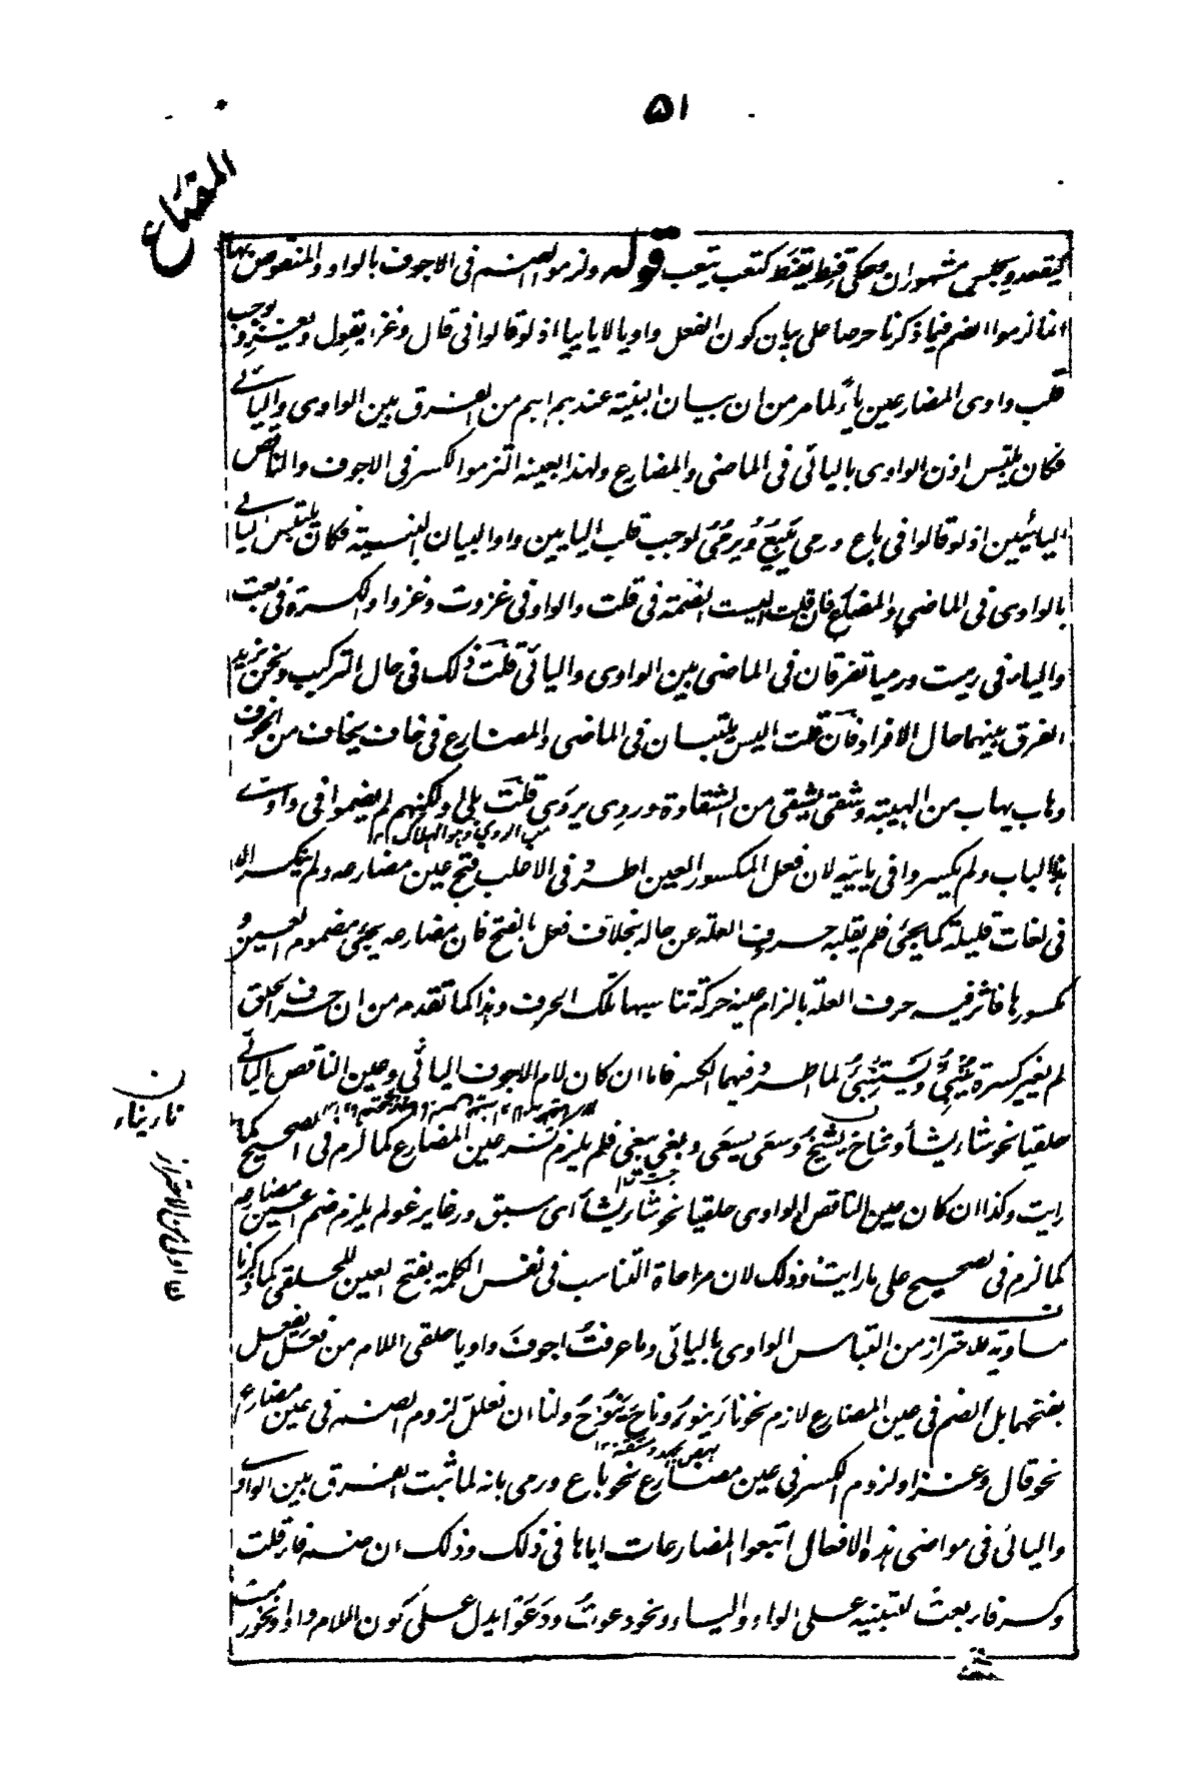 ٥١
المضارع
كيقعد ويجلس مشهوران وحكى قنط يقنط كتعب يتعب قوله ولزموا الضم فى الاجوف بالواو والمنقوص بها
انما لزموا الضم فيما ذكرنا حرصا على بيان كون الفعل واويا لا يائيا اذ لو قالوا فى قال وغزا يقول ويغزو وجب
قلب واوى المضارعين ياء لما مر من ان بيان البنية عندهم اهم من الفرق بين الواوى واليائى
فكان يلتبس اذن الواوى باليائى فى الماضى والمضارع ولهذا بعينه التزموا الكسر فى الاجوف والناقص
اليائيين اذ لو قالوا فى باع ورمى يبيع ويرمى لوجب قلب اليايين واوا لبيان البنية فكان يلتبس اليائى
بالواوى فى الماضى والمضارع فان قلت اليست الضمة فى قلت والواو فى غزوت وغزوا والكسرة فى بعت
والياء فى رميت ورميا تفرقان فى الماضى بين الواوى واليائى قلت ذلك فى حال التركيب ونحن نريد
الفرق بينهما حال الافراد فان قلت اليس يلتبسان فى الماضى والمضارع فى خاف يخاف من الخوف
وهاب يهاب من الهيبة وشقى يشقى من الشقاوة وردى يردى قلت بلى ولكنهم لم يضموا فى واوى
من الردى وهو الهلاك ١٢
هذا الباب ولم يكسروا فى يائيه لان فعل المكسور العين اطرد فى الاغلب فتح عين مضارعه ولم ينكسر الا
فى لغات قليلة كما يجئ فلم يقلبه حرف العلة عن حاله بخلاف فعل بالفتح فان مضارعه يجئ مضموم العين و
مكسورها فاثر فيه حرف العلة بالزام عينه حركة تناسبها تلك الحرف وهذا كما تقدم من ان حرف الحلق
لم يغير كسرة ينبئ ويستنبئ لما اطرد فيهما الكسر فاما ان كان لام الاجوف اليائى وعين الناقص اليائى
حلقيا نحو شاء يشاء وشاخ يشيخ وسعى يسعى وبغى يبغى فلم يلزم كسر عين المضارع كما لزم فى الصحيح كما
رايت وكذا ان كان عين الناقص الواوى حلقيا نحو شأى يشأى اى سبق ورغا يرغو لم يلزم ضم عين مضارعه
كما لزم فى الصحيح على ما رايت وذلك لان مراعاة التناسب فى نفس الكلمة بفتح العين للحلقى كما ذكرنا
مساوية للاحتراز من التباس الواوى باليائى وما عرفت اجوف واويا حلقى اللام من فعل يفعل
بفتحهما بل الضم فى عين المضارع لازم نحو نار ينور وناح ينوح ولنا ان نعلل لزوم الضم فى عين مضارع
نحو قال وغزا ولزوم الكسر فى عين مضارع نحو باع ورمى بانه لما ثبت الفرق بين الواوى
واليائى فى مواضى هذه الافعال اتبعوا المضارعات اياها فى ذلك وذلك ان ضمة فاء قلت
وكسر فاء بعت للتنبيه على الواو والياء ونحو دعوت ودعوا يدل على كون اللام واوا ونحو رميت